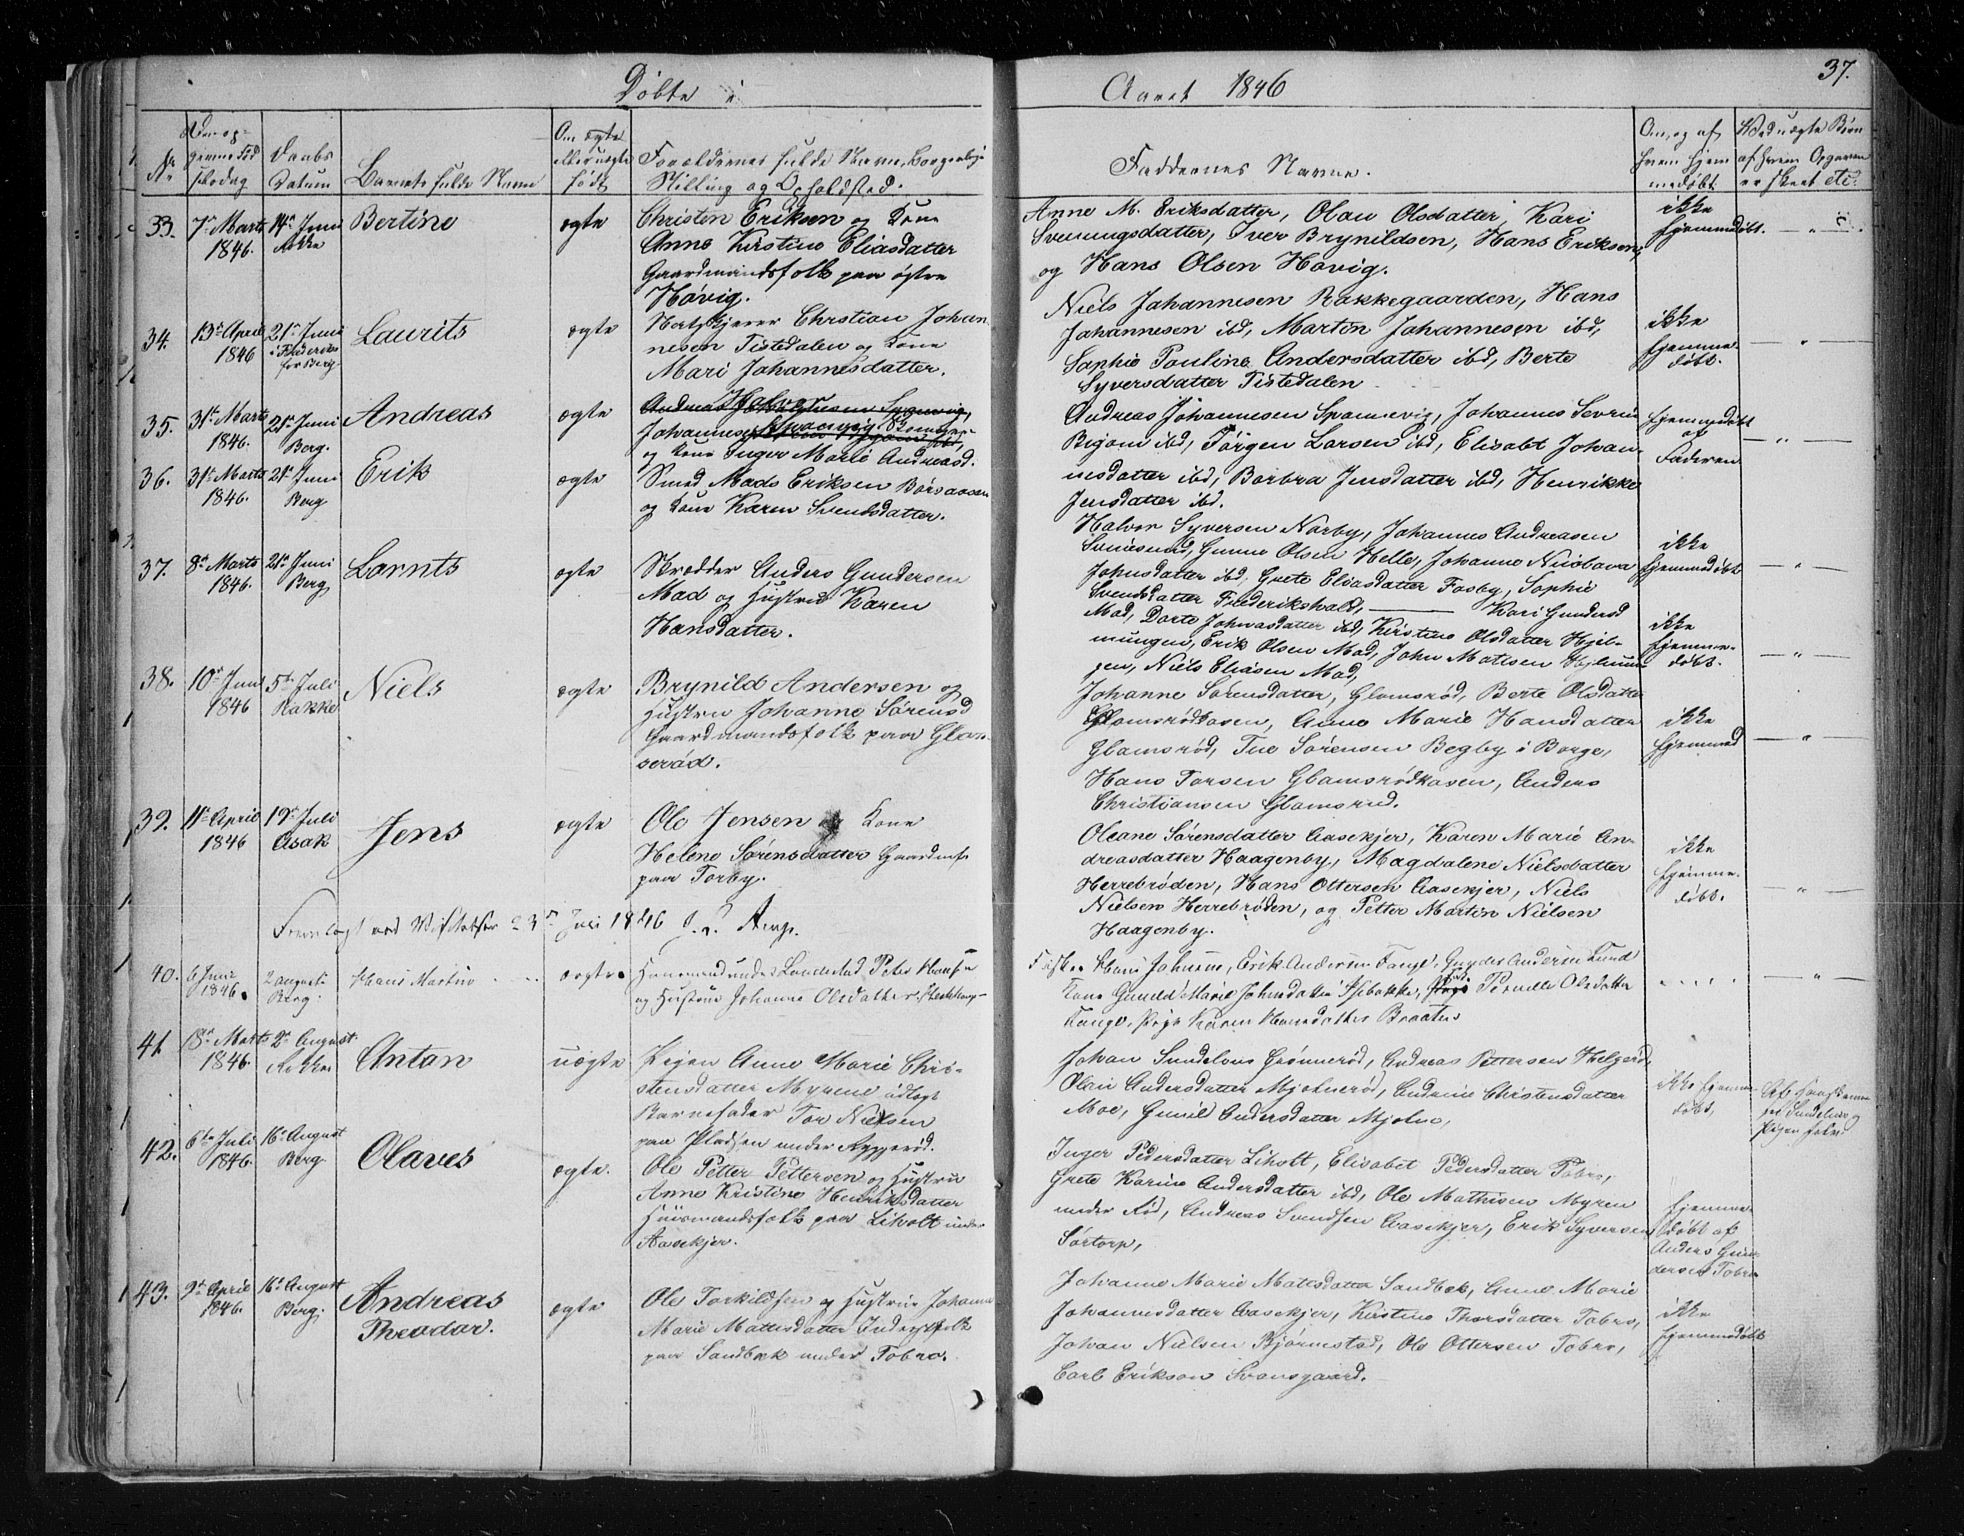 Døbte i
Aaret 1846
37.
Nr
Den op-
givne Fød
selsdag
Daabs
Datum
Barnets fulde Navn
Om ægte
eller uægte
født
Forældrenes fulde Navne, Borgerlige
Stilling og Opholdsted.
Faddernes Navne.
Om, og af
hvem hjem
medøbt
Ved uægte Børn
af hvem Opgaven
er skeet etc.
33. 7de Marts 14de Juni Bertine ægte Christen Eriksen og Kone
1846. Rokke Anne Kirstine Eliasdatter
Gaardmandsfolk paa østre
Høvig.
Anne M. Eriksdatter, Olau Olsdatter, Kari
Svenungsdatter, Iver Brynildsen, Hans Eriksen,
og Hans Olsen Høvig.
ikke
hjemmedøbt. — " —
34. 13de April 21de Juni Laurits ægte Christian Johan-
1846 nesen Tistedalen og Kone
for Berg. Mari Johannesdatter.
Niels Johannesen Rakkegaarden, Hans
Johannesen ibd, Martin Johannesen ibd,
Sophie Pouline Andersdatter ibd, Berte
Syversdatter Tistedalen
ikke
hjemme-
døbt. — " —
35. 31te Marts 21de Juni Andreas ægte
1846. Berg. Johannes
og Kone Inger Marie Andreasd.
Andreas Johannesen Svannevig, Johannes
ibd, Jørgen Larsen ibd, Elisabt Johan-
nesdatter ibd, Barbra Jensdatter ibd, Henrikke
Jensdatter ibd.
hjemmedøbt
af
Faderen — " —
36. 31te Marts 21de Juni Erik ægte Smed Mads Eriksen
1846. Berg og Kone Karen Svendsdatter.
Halvor Syversen Nørby, Johannes Andreasen
Gunne Olsen Helle, Johanne
Johnsdatter ibd, Grete Eliasdatter Fosby, Sophie
Svendsdatter Frederikshald,
ikke
hjemmedøbt — " —
37. 8de Marts 21de Juni Larnts ægte Skrædder Anders Gundersen
1846. Berg Mad og Hustru Karen
Hansdatter.
Kari Gundersd
Mad, Dorte ibd, Kirstine Olsdatter Hjel-
mungen, Erik Olsen Mad, John Matisen Hjelmun-
gen, Niels Eliasen Mad,
ikke
hjemme-
døbt. — " —
38. 10de Juni 5te Juli Niels ægte Brynild Andersen og
1846 Rakke Hustru Johanne Sørensd
Gaardmandsfolk paa Glam-
serød.
Johanne Sørensdatter, Glamsrød, Berte Olsdatter
Glamsrødkasen, Anne Marie Hansdatter
Glamsrød, Tue Sørensen Begby i Borge,
Hans Torsen Glamsrødkasen, Anders
Christiansen Glamsrud.
ikke
hjemmed — " —
39. 11te April 19de Juli Jens ægte Ole Jensen og Kone
1846 Asak Helene Sørensdatter Gaardmfk
paa Torby.
Oleane Sørensdatter Aasekjer, Karen Marie An-
dreasdatter Haagenby, Magdalene Nielsdatter
Herrebrøden, Hans Ottersen Aasekjer, Niels
Nielsen Herrebrøden, og Petter Martin Nielsen
Haagenby.
ikke
hjemme-
døbt. — " —
Fremlagt ved Visitatsen Juli 1846
40. 6 Juni 2 august Hans Martin ægte. Huusmand under Peter Hansen
1846. Berg. og Hustrue Johanne Olsdatter
Hans Johnsen, Erik Andersen Tange, Anders
Kone Gunild Marie Johnsdatter Pernille Olsdatter
Tange, Pige Karen Hansdatter Braaten
— " —
41 18de Marts 2de August Antan uægte Pigen Anne Marie Chri-
1846. Rokke stensdatter Myrene udlagt
Barnefader Tor Nielsen
paa Pladsen under
Johan Grønnerød, Andreas Pettersen Helgerød,
Olau Andersdatter Mjølnerød, Andrine Christensdatter
Moe, Gunild Andersdatter Mjølne,
ikke hjemme-
døbt,
Pigen selv.
42. 6te Juli 16de August Olaves ægte. Ole Petter Pettersen og Hustru
1846. Berg. Anne Kristine Henriksdatter
Huusmandsfolk paa Liholt under
Aasekjer.
Inger Pedersdatter Liholt, Elisabet Pedersdatter Tobro,
Grete Karine Andersdatter ibd, Ole Mathisen Myren
under Rød, Andreas Svendsen Aasekjer, Erik Syversen
Sørtorp,
hjemme-
døbt af
Anders Gun-
dersen Tobro
43. 9de April 16de August Andreas ægte Ole Torkildsen og Hustrue Johanne
1846. Berg. Theodor. Marie Mattisdatter Inderstfolk
paa Sandbæk under Tobro.
Johanne Marie Mattsdatter Sandbek, Anne Marie
Johannesdatter Aasekjer, Kirstine Thorsdatter Tobro,
Johan Nielsen Bjørnestad, Ole Ottersen Tobro,
Carl Erikson Svensgaard.
ikke
hjemmedøbt